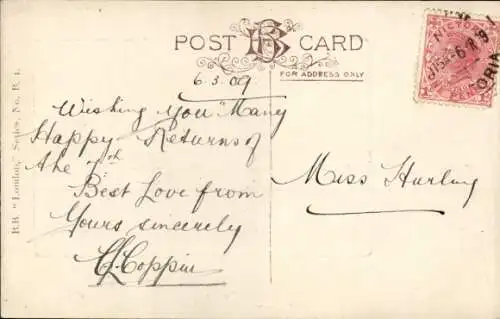 POST CARD
BB
FOR ADDRESS ONLY
6.3.09
Wishing You Many
Happy Returns of
the 7th
Best Love from
Yours sincerely
Coppin
Miss Hurling
B.B "London," Series, No. B. 1.